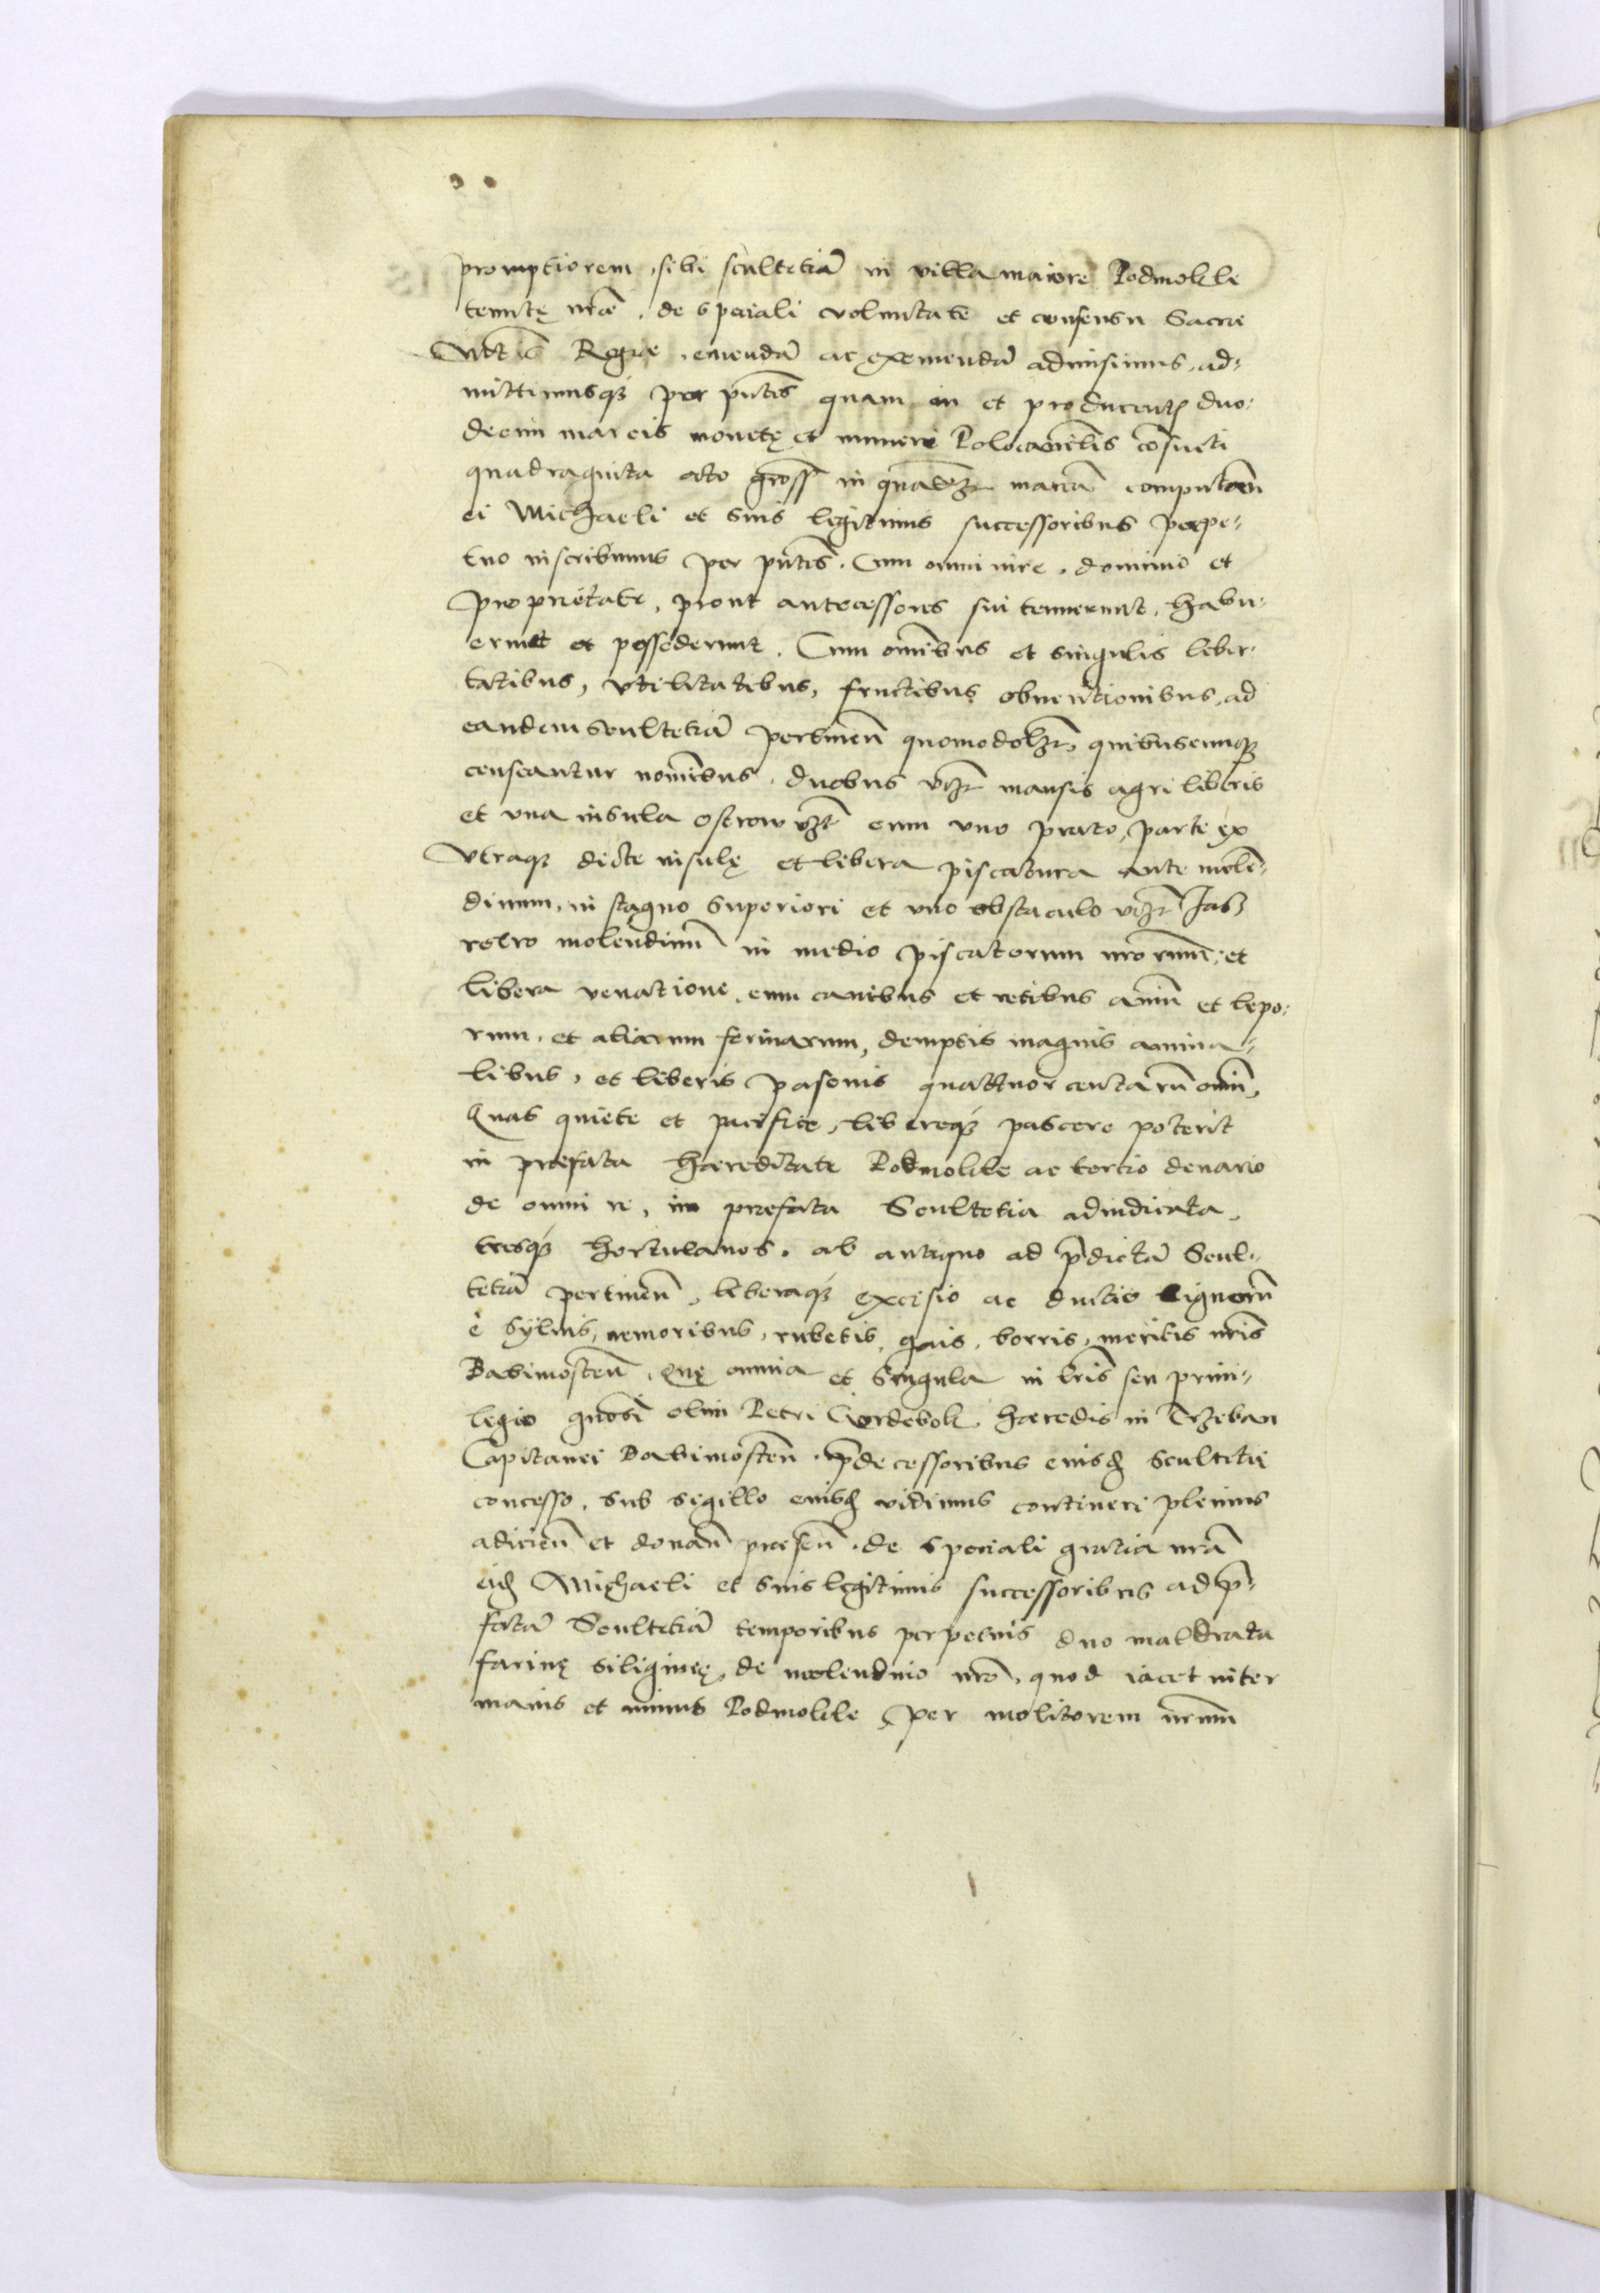 promptiorem, sibi scultetiā in villa maiore Podmokle
tenutę nr̄æ, de speciali voluntate et consensu Sacræ
Mtis Regiæ, emendā ac exemendā admisimus, ad-
mittimusq; per pn̄tes quam in et producentes duo-
decim marcis monetę et numeri Polocanicalis cōsueti
quadraginta octo gross in quāl3 marcā computan̄
ei Michaeli et suis legitimis successoribus perpe-
tuo inscribimus per pn̄tes. Cum omni iure, dominio et
proprietate, prout antecessores sui tenuerunt, habu-
erunt et possederunt. Cum om̄ibus et singulis liber-
tatibus, vtilitatibus, fructibus obuentionibus, ad
eandem scultetiā pertinen̄ quomodol3, quibuscumq;
censeantur nominibus, duobus v3 mansis agri liberis
et vna insula ostrow v3 cum vno prato, parte ex
Vtraq; dicte insulę et libera piscatura ante molē-
dinum, in stagno superiori et vno obstaculo v3 Jas
retro molendinū in medio piscatorum nr̄orum, et
libera venatione, cum canibus et retibus aviū et lepo-
rum, et aliarum ferinarum, demptis magnis anima-
libus, et liberis pascuis quattuor centarū oviū,
Quas quiete et pacifice, libereq; pascere poterit
in præfata hæreditate Podmokle ac tertio denario
de omni re, in præfata Scultetia adiudicata,
tresq; hortulanos, ab antiquo ad p̄dictā Scul-
tetiā pertinen̄, liberaq; excisio ac ductio lignorū
è syluis, nemoribus, rubetis, gais, borris, mericis nr̄is
Babimosten̄, Quę omnia et singula in lr̄is seu priui-
legio gn̄osi olim Petri hæredis in Trzeban
Capitanei Babimosten̄, p̄decessoribus eiusd scultetię
concesso, sub sigillo eiusd vidimus contineri plenius
adicien̄ et donan̄ præsen̄, de speciali gratia nr̄a
eid Michaeli et suis legitimis successoribus ad p̄-
fatā Scultetiā temporibus perpetuis duo maldrata
farinę siligineę, de molendino nr̄o, quod iacet inter
maius et minus Podmokle per molitorem nr̄um